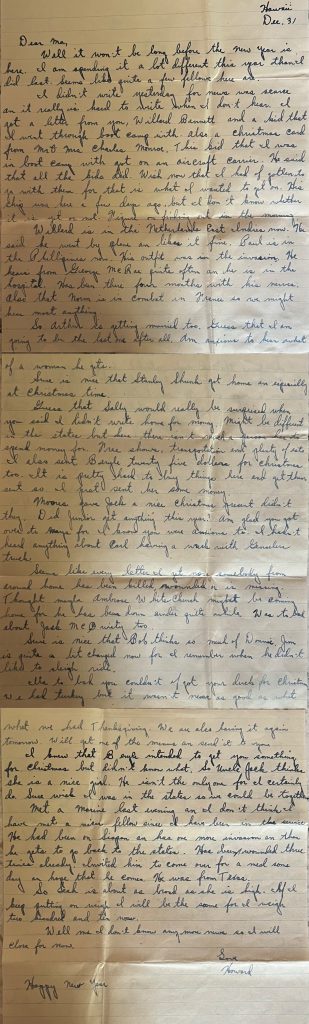 Hawaii
Dec. 31
Dear Ma,
Well it won't be long before the new year is
here. I am spending it a lot different this year than I
did last. Seems like quite a few fellows here are.
I didn't write yesterday for news was scarce
an it really is hard to write when I don't hear. I
got a letter from you, Willard Bennett and a kid that
I went through boot camp with also a Christmas card
from Mr + Mrs Charles Monroe. This kid that I was
in boot camp with got on an aircraft carrier. He said
that all the kids did. Wish now that I had of gotten to
go with them for that is what I wanted to get on. His
ship was here a few days ago, but I don't know whether
it is yet or not. Figure on finding out in the morning.
Willard is in the Netherlands East Indies now. He
said he went by plane an likes it fine. Paul is in
the Philippines now. His outfit was in the invasion. He
hears from George McRae quite often an he is in the
hospital. Has been there four months with his nerves.
Also that Norm is in combat in France so we might
hear most anything.
So Arthur is getting married too. Guess that I am
going to be the last one after all. Am anxious to hear what
of a woman he gets.
Sure is nice that Stanley Shunk got home an especially
at Christmas time.
Guess that Sally would really be surprised when
you said I didn't write home for money. Might be different
in the states but here there isn't much a person has to
spend money for. Free shows, transportation and plenty of eats
I also sent Beryle twenty five dollars for Christmas
too. It is pretty hard to buy things here and get them
sent so I just sent her some money.
Moores gave Jack a nice Christmas present didn't
they. Did Junior get anything this year? Am glad you got
over to for I know you were anxious to. I hadn't
heard anything about Carl having a wreck with
truck.
Seems like every letter I get now somebody from
around home has been killed, wounded or is missing.
Thought maybe Ambrose would be coming
home for he has been down under quite awhile. Was to bad
about Jack too.
Sure is nice that Bob thinks so much of Donnie. Jim
is quite a bit changed now for I remember when he didn't
like to sleigh ride.
Ma to bad you couldn't of got your duck for Christmas
We had turkey but it wasn't near as good as what
what we had Thanksgiving. We are also having it again
tomorrow. Will get one of the menus an send it to you.
I knew that Beryle intended to get you something
for Christmas but I didn't know what. So Uncle Jack thinks
she is a nice girl. He isn't the only one for I certainly
do. Sure wish I was in the states so we could be together
Met a Marine last evening an I don't think I
have met a nicer fellow since I have been in the service
He had been on Saipan an has one more invasion an then
he gets to go back to the states. Has been wounded three
times already. I invited him to come over for a meal some
day an hope that he comes. He was from Texas.
So is about as broad as she is high. If I
keep putting on weigh I will be the same for I weigh
two hundred and ten now.
Well ma I don't know any more news so I will
close for now.
Love
Howard
Happy New Year